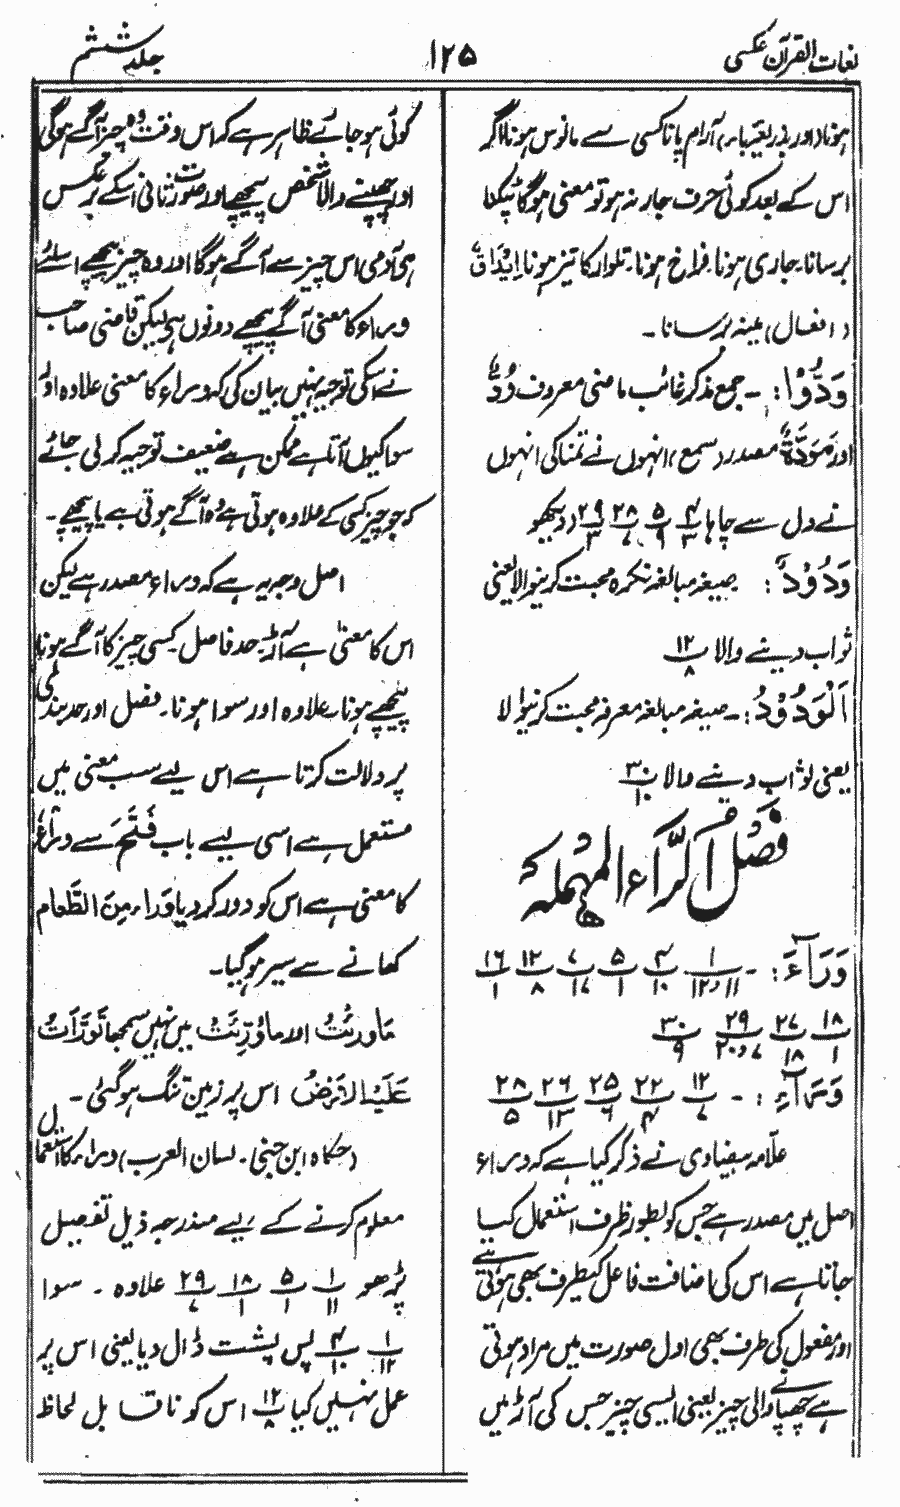 لغات القرآن عکسی
۱۲۵
جلد ششم
ہونا (اور بذریعہ باء) آرام پانا کسی سے مانوس ہونا اگر
اس کے بعد کوئی حرف جار نہ ہو تو معنی ہوگا ٹپکنا
برسانا جاری ہونا فراخ ہونا۔ تلوار کا تیز ہونا اِیْدَاق
(افعال) مینہ برسانا ۔
وَدُّوْا: ۔ جمع مذکر غائب ماضی معروف وُدٌّ
اور مَوَدَّۃٌ مصدر (سمع) انہوں نے تمنا کی انہوں
نے دل سے چاہا ۴/۳ ۵/۹ ۲۸/۷ ۲۹/۳ (دیکھو
وَدُوْدٌ : صیغہ مبالغہ نکرہ محبت کرنیوالا یعنی
ثواب دینے والا ۱۲/۸
اَلْوَدُوْدُ: ۔ صیغہ مبالغہ معرفہ محبت کرنیوالا
یعنی ثواب دینے والا ۳۰/۱۰
فصل الرّاء المہملہ
وَرَآءَ: ۔ ۱/۱۱و۱۲ ۴/۱۰ ۵/۱ ۷/۱۷ ۱۲/۸ ۱۶/۱
۱۸/۱ ۲۷/۱۸ ۲۹/۷و۲۰ ۳۰/۹
وَرَآءِ : ۔ ۱۲/۷ ۲۲/۴ ۲۵/۶ ۲۶/۱۳ ۲۸/۵
علامہ بیضاوی نے ذکر کیا ہے کہ وراء
اصل میں مصدر ہے جس کو بطور ظرف استعمال کیا
جاتا ہے اس کی اضافت فاعل کی طرف بھی ہوتی ہے
اور مفعول کی طرف بھی اول صورت میں مراد ہوتی
ہے چھپانے والی چیز یعنی ایسی چیز جس کی آڑ میں
کوئی ہو جائے ظاہر ہے کہ اس وقت وہ چیز آگے ہوگی
اور چھپنے والا شخص پیچھے اور صورت ثانی اسکے برعکس
ہی آدمی اس چیز سے آگے ہوگا اور وہ چیز پیچھے اسلئے
وراء کا معنی آگے پیچھے دونوں ہیں لیکن قاضی صاحب
نے اسکی توجیہ نہیں بیان کی کہ وراء کا معنی علاوہ اور
سوا کیوں آتا ہے ممکن ہے ضعیف توجیہ کر لی جائے
کہ جو چیز کسی کے علاوہ ہوتی ہے وہ آگے ہوتی ہے یا پیچھے ۔
اصل وجہ یہ ہے کہ وراء مصدر ہے لیکن
اس کا معنیٰ ہے آڑ۔ حد فاصل ۔ کسی چیز کا آگے ہونا
پیچھے ہونا۔ علاوہ اور سوا ہونا۔ فصل اور حد بندی
پر دلالت کرتا ہے اس لیے سب معنی میں
مستعمل ہے اسی لیے باب فَتَحَ سے وراء
کا معنی ہے اس کو دور کر دیا وَرَاء مِنَ الطَّعام
کھانے سے سیر ہو گیا۔
مَا وُرئتُ اور ماوُرِئَتُ میں نہیں سمجھا تَوَرَّأَتْ
عَلَیْہِ الْاَرْضُ اس پر زمین تنگ ہو گئی ۔
(حکاہ ابن جنی ۔ لسان العرب) وراء کا استعمال
معلوم کرنے کے لیے مندرجہ ذیل تفصیل
پڑھو ۱/۱۱ ۵/۱ ۱۸/۱ ۲۹/۷ علاوہ ۔ سوا
۱/۱۲ ۴/۱۰ پس پشت ڈال دیا یعنی اس پر
عمل نہیں کیا ۱۲/۸ اس کو ناقابل لحاظ